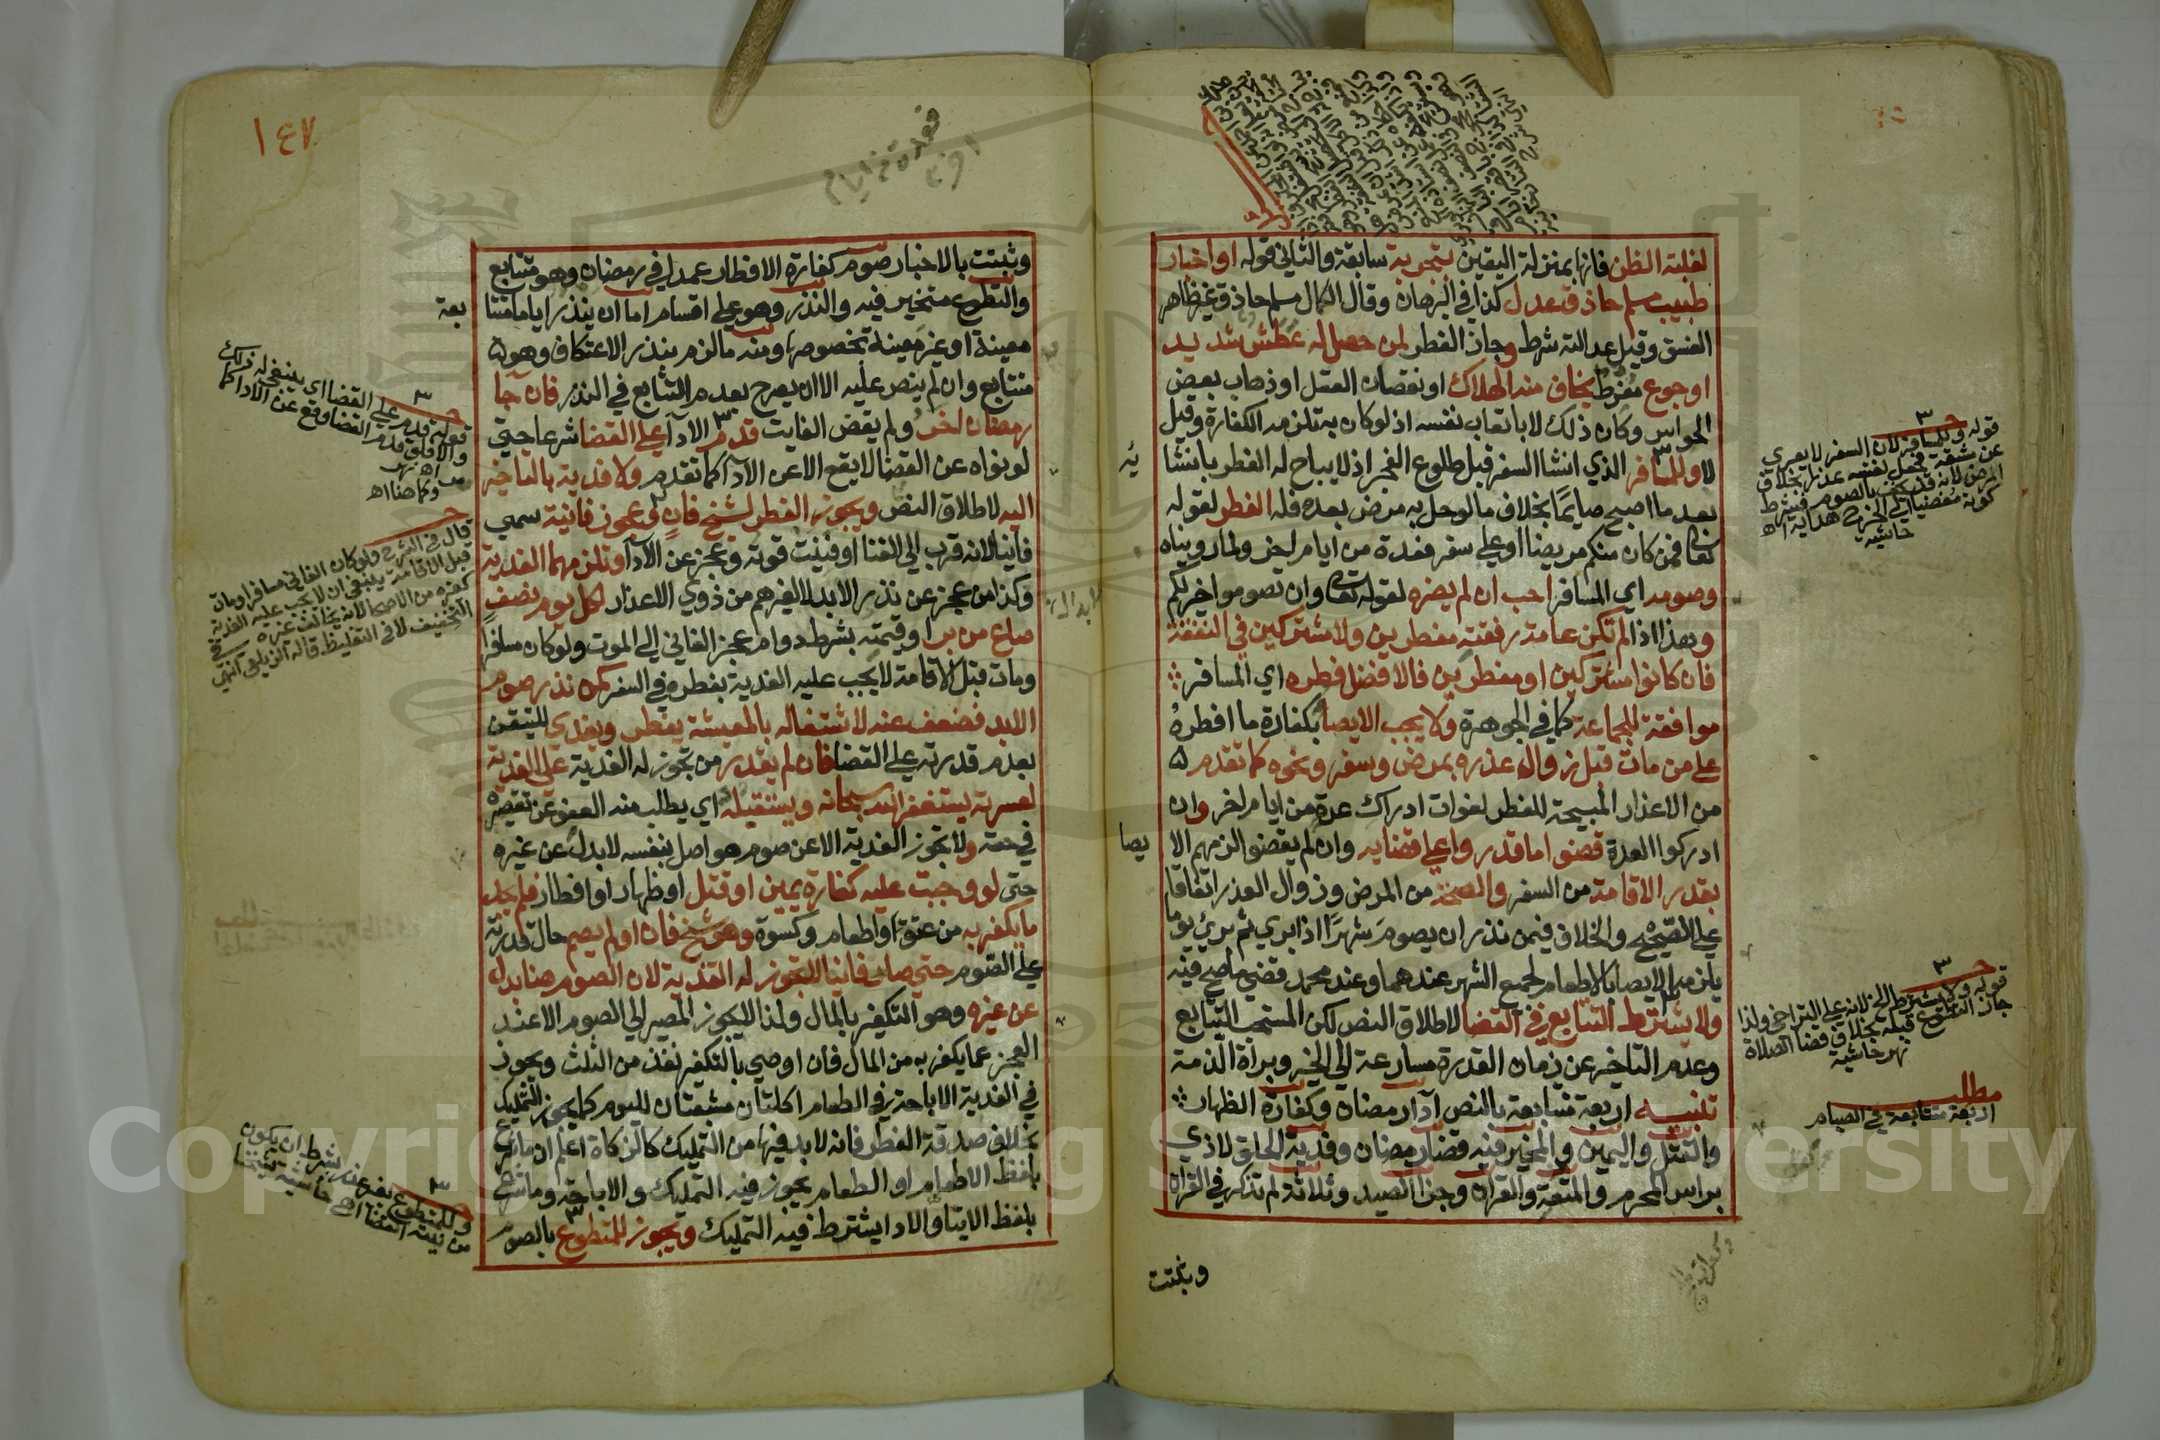 لغلبة الظن فانها بمنزلة اليقين بتجربة سابقة والثاني قوله او اخبار
طبيب مسلم حاذق عدل كذا في البرهان وقال الكمال مسلم حاذق غير ظاهر
الفسق وقيل عدالته شرط وجاز الفطر لمن حصل له عطش شديد
او جوع مفرط يخاف منه الهلاك او نقصان العقل او ذهاب بعض
الحواس وكان ذلك لا باتعاب نفسه اذ لو كان به تلزمه الكفارة وقيل
لا وللمسافر الذي انشا السفر قبل طلوع الفجر اذ لا يباح له الفطر بانشا
ئه
بعد ما اصبح صايما بخلاف ما لو حل به مرض بعده فله الفطر لقوله
تعالى فمن كان منكم مريضا او على سفر فعدة من ايام اخر ولما رويناه
وصومه اي المسافر احب ان لم يضره لقوله تعالى وان تصوموا خير لكم
وهذا اذا لم تكن عامة رفقته مفطرين ولا مشتركين في النفقة
فان كانوا مشتركين او مفطرين فالافضل فطره اي المسافر
موافقة للجماعة كما في الجوهرة ولا يجب الايصا بكفارة ما افطره
على من مات قبل زوال عذره بمرض وسفر ونحوه كما تقدم ه
من الاعذار المبيحة للفطر لفوات ادراك عدة من ايام اخر وان
ادركوا العدة قضوا ما قدروا على قضايه وان لم يقضوا لزمهم الا
يصا
بقدر الاقامة من السفر والصحة من المرض وزوال العذر اتفاقا
على الصحيح والخلاف فيمن نذر ان يصوم شهرا اذا بري ثم بري يوما
يلزمه الايصا بالاطعام لجميع الشهر عندهما وعند محمد قضى ما صح فيه
ولا يشترط التتابع في القضا لاطلاق النص لكن المستحب التتابع
وعدم التاخير عن زمان القدرة مسارعة الى الخير وبراة الذمة
تنبيه اربعة متتابعة بالنص آدا رمضان وكفارة الظهار
والقتل واليمين والمخير فيه قضا رمضان وفدية الحلق لاذي
براس المحرم والمتعة والقران وجزا الصيد وثلاثة لم تذكر في القران
وثبتت
قوله وللمسافر لان السفر لا يعري
عن مشقة فجعل نفسه عذرا بخلاف
المرض لانه قد يخف بالصوم فشرط
كونه مفضيا الى الحرج هداية اه
حاشيه
قوله ولا يشترط الخ لانه على التراخي ولذا
جاز التطوع قبله بخلاف قضا الصلاة
نهر حاشية
مطلب
اربعة متتابعة في الصيام
١٤٧
وثبتت بالاخبار صوم كفارة الافطار عمدا في رمضان وهو متتابع
والتطوع متخير فيه والنذر وهو على اقسام اما ان ينذر اياما متتا
بعة
معينة او غير معينة بخصوصها ومنه ما لزم بنذر الاعتكاف وهو ه
متتابع وان لم ينص عليه الا ان يصرح بعدم التتابع في النذر فان جآ
رمضان اخر ولم يقض الفايت قدم الادآ على القضا شرعا حتى
لو نواه عن القضا لا يقع الا عن الادآ كما تقدم ولا فدية بالتاخير
اليه لاطلاق النص ويجوز الفطر لشيخ فان وعجوز فانية سمي
فانيا لانه قرب الى الفنا او فنيت قوته وعجز عن الادآ وتلزمهما الفدية
وكذا من عجز عن نذر الابد لا لغيرهم من ذوي الاعذار لكل يوم نصف
صاع من بر او قيمته بشرط دوام عجز الفاني الى الموت ولو كان مسافرا
ومات قبل الاقامة لا يجب عليه الفدية بفطره في السفر كمن نذر صوم
الابد فضعف عنه لاشتغاله بالمعيشة يفطر ويفدي للتيقن
بعدم قدرته على القضا فان لم يقدر من تجوز له الفدية على الفدية
لعسرته يستغفر الله سبحانه ويستقيله اي يطلب منه العفو عن تقصيره
في حقه ولا تجوز الفدية الا عن صوم هو اصل بنفسه لا بدل عن غيره
حتى لو وجبت عليه كفارة يمين او قتل او ظهار او افطار فلم يجد
ما يكفر به من عتق او اطعام وكسوة وهو شيخ فان او لم يصم حال قدرته
على الصوم حتى صار فانيا لا تجوز له الفدية لان الصوم هنا بدل
عن غيره وهو التكفير بالمال ولذا لا يجوز المصير الى الصوم الا عند
العجز عما يكفر به من المال فان اوصي بالتكفير نفذ من الثلث ويجوز
في الفدية الاباحة في الطعام اكلتان مشبعتان لليوم كما يجوز التمليك
بخلاف صدقة الفطر فانه لا بد فيها من التمليك كالزكاة اعلم ان ما شرع
بلفظ الاطعام او الطعام يجوز فيه التمليك والاباحة وما شرع
بلفظ الايتا والادا يشترط فيه التمليك ويجوز للمتطوع بالصوم
قوله قدم على القضا اي ينبغي له ذلك
والا فلو قدم القضا وقع عن الادا كما
اه نهر
قال في الشرح ولو كان الفاني مسافرا ومات
قبل الاقامة ينبغي ان لا يجب عليه الفدية
كغيره من الاصحا لانه يخالف غيره في
التخفيف لا في التغليظ قاله الزيلعي انتهى
وللمتطوع بغير عذر بشرط ان يكون
من نيته القضا
Copyright © King Saud University